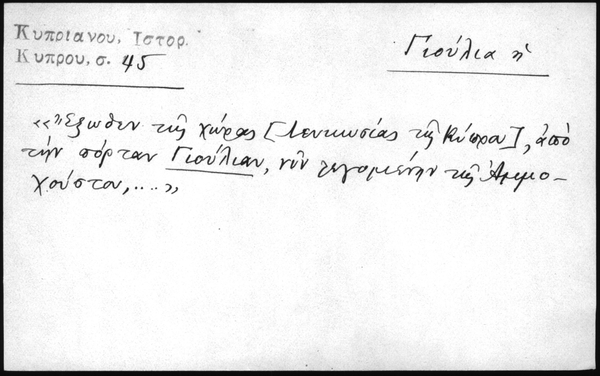 Κυπριανου, Ιστορ.
Κυπρου, σ. 45
Γιούλια ἡ
«Ἔξωθεν τῆς χώρας [Λευκωσίας τῆς Κύπρου], ἀπὸ
τὴν πόρταν Γιούλιαν, νῦν λεγομένην τῆς Ἀμμο-
χούστου, ....»